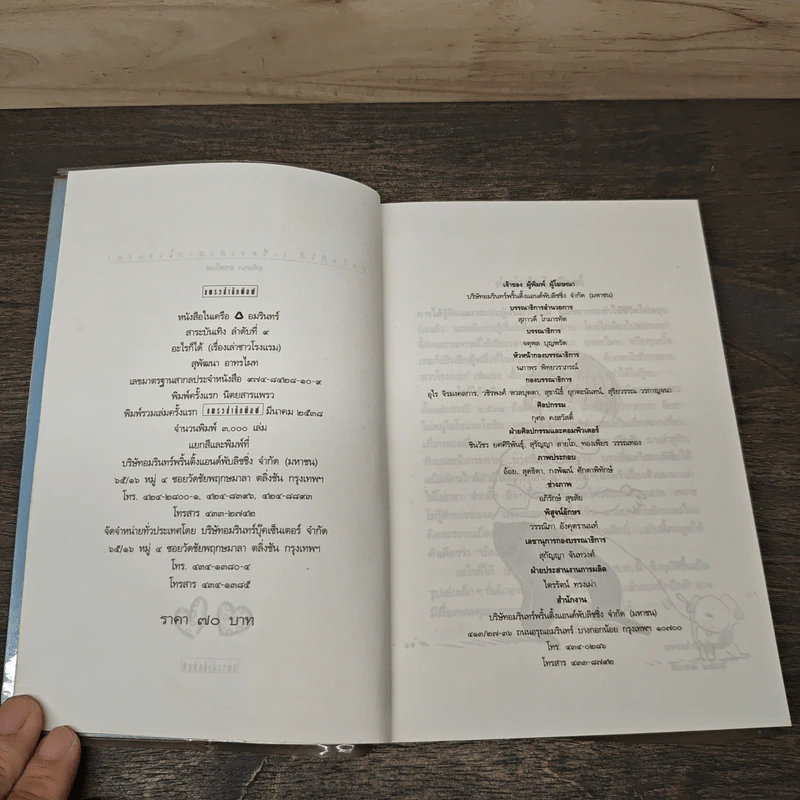 แพรวสำนักพิมพ์
หนังสือในเครือ อมรินทร์
สาระบันเทิง ลำดับที่ ๙
อะไรก็ได้ (เรื่องเล่าชาวโรงแรม)
สุพัฒนา อาทรไผท
เลขมาตรฐานสากลประจำหนังสือ ๙๗๔-๘๔๒๘-๑๐-๑
พิมพ์ครั้งแรก นิตยสารแพรว
พิมพ์รวมเล่มครั้งแรก แพรวสำนักพิมพ์ มีนาคม ๒๕๓๘
จำนวนพิมพ์ ๓,๐๐๐ เล่ม
แยกสีและพิมพ์ที่
บริษัทอมรินทร์พริ้นติ้งแอนด์พับลิชชิ่ง จำกัด (มหาชน)
๖๕/๑๖ หมู่ ๔ ซอยวัดชัยพฤกษมาลา ตลิ่งชัน กรุงเทพฯ
โทร. ๔๒๔-๒๘๐๐-๑, ๔๒๔-๘๓๙๖, ๔๒๔-๘๘๙๓
โทรสาร ๔๓๓-๒๗๔๒
จัดจำหน่ายทั่วประเทศโดย บริษัทอมรินทร์บุ๊คเซ็นเตอร์ จำกัด
๖๕/๑๖ หมู่ ๔ ซอยวัดชัยพฤกษมาลา ตลิ่งชัน กรุงเทพฯ
โทร. ๔๓๔-๑๓๘๐-๔
โทรสาร ๔๓๔-๑๓๘๕
ราคา ๗๐ บาท
เจ้าของ ผู้พิมพ์ ผู้โฆษณา
บริษัทอมรินทร์พริ้นติ้งแอนด์พับลิชชิ่ง จำกัด (มหาชน)
บรรณาธิการอำนวยการ
สุภาวดี โกมารทัต
บรรณาธิการ
จตุพล บุญพรัด
หัวหน้ากองบรรณาธิการ
นภาพร พิทยวราภรณ์
กองบรรณาธิการ
อุไร จิรมงคลการ, วชิรพงศ์ หวลบุตตา, สุชานิธี ยุกตะนันทน์, สุริยวรรณ วรกาญจนา
ศิลปกรรม
กุศล คงสวัสดิ์
ฝ่ายศิลปกรรมและคอมพิวเตอร์
ชินวัชร ยศศิริพันธุ์, สุรัญญา ลายไถ, ทองเพียร วรรณทอง
ภาพประกอบ
อ้อย, สุดธิดา, กงพัฒน์ ศักดาพิทักษ์
ช่างภาพ
อภิรักษ์ สุขสัย
พิสูจน์อักษร
วรรณิภา อังคุตรานนท์
เลขานุการกองบรรณาธิการ
สุกัญญา จันทวงศ์
ฝ่ายประสานงานการผลิต
ไตรรัตน์ ทรงเผ่า
สำนักงาน
บริษัทอมรินทร์พริ้นติ้งแอนด์พับลิชชิ่ง จำกัด (มหาชน)
๔๑๓/๒๗-๓๖ ถนนอรุณอมรินทร์ บางกอกน้อย กรุงเทพฯ ๑๐๗๐๐
โทร. ๔๓๔-๐๒๘๖
โทรสาร ๔๓๓-๘๗๙๒